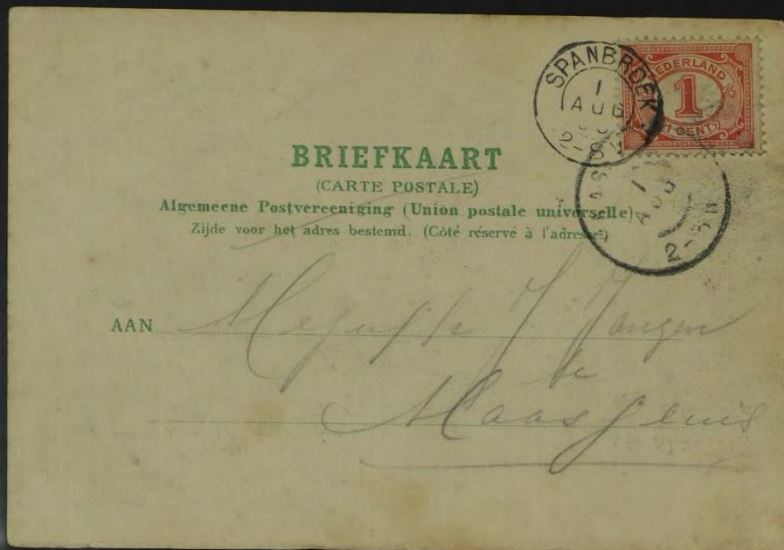 SPANBROEK
1
AUG
2-8V
NEDERLAND
1
(1 CENT)
1
AUG
2-5N
BRIEFKAART
(CARTE POSTALE)
Algemeene Postvereeniging (Union postale universelle)
Zijde voor het adres bestemd. (Côté réservé à l'adresse)
AAN Mejuffr J. Jongen
te